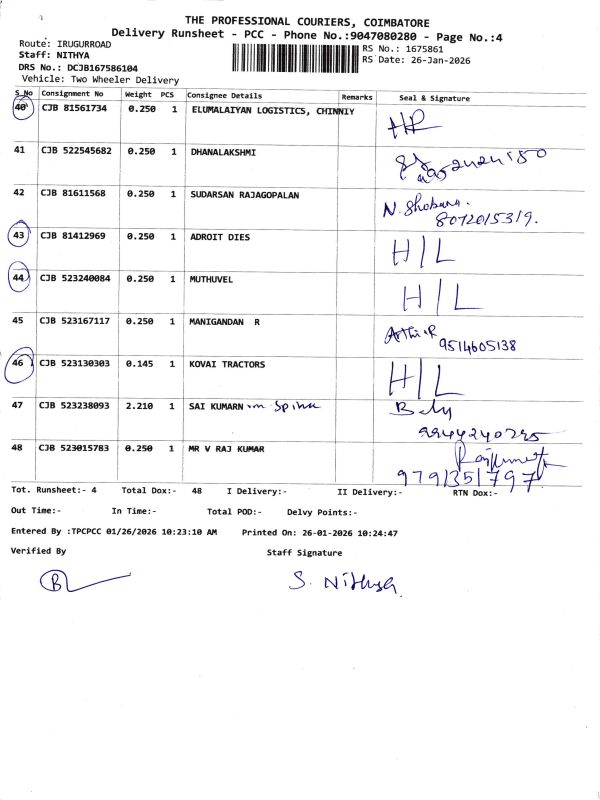 THE PROFESSIONAL COURIERS, COIMBATORE
Delivery Runsheet - PCC - Phone No.:9047080280 - Page No.:4
Route: IRUGURROAD
RS No.: 1675861
Staff: NITHYA
RS Date: 26-Jan-2026
DRS No.: DCJB167586104
Vehicle: Two Wheeler Delivery
S No Consignment No Weight PCS Consignee Details Remarks Seal & Signature
40 CJB 81561734 0.250 1 ELUMALAIYAN LOGISTICS, CHINNIY
41 CJB 522545682 0.250 1 DHANALAKSHMI
42 CJB 81611568 0.250 1 SUDARSAN RAJAGOPALAN N. Shobana.
8072015319.
43 CJB 81412969 0.250 1 ADROIT DIES H/L
44 CJB 523240084 0.250 1 MUTHUVEL H/L
45 CJB 523167117 0.250 1 MANIGANDAN R
9514605138
46 CJB 523130303 0.145 1 KOVAI TRACTORS H/L
47 CJB 523238093 2.210 1 SAI KUMARN
9944240795
48 CJB 523015783 0.250 1 MR V RAJ KUMAR
9791351797
Tot. Runsheet:- 4 Total Dox:- 48 I Delivery:- II Delivery:- RTN Dox:-
Out Time:- In Time:- Total POD:- Delvy Points:-
Entered By :TPCPCC 01/26/2026 10:23:10 AM Printed On: 26-01-2026 10:24:47
Verified By Staff Signature
S. Nithya